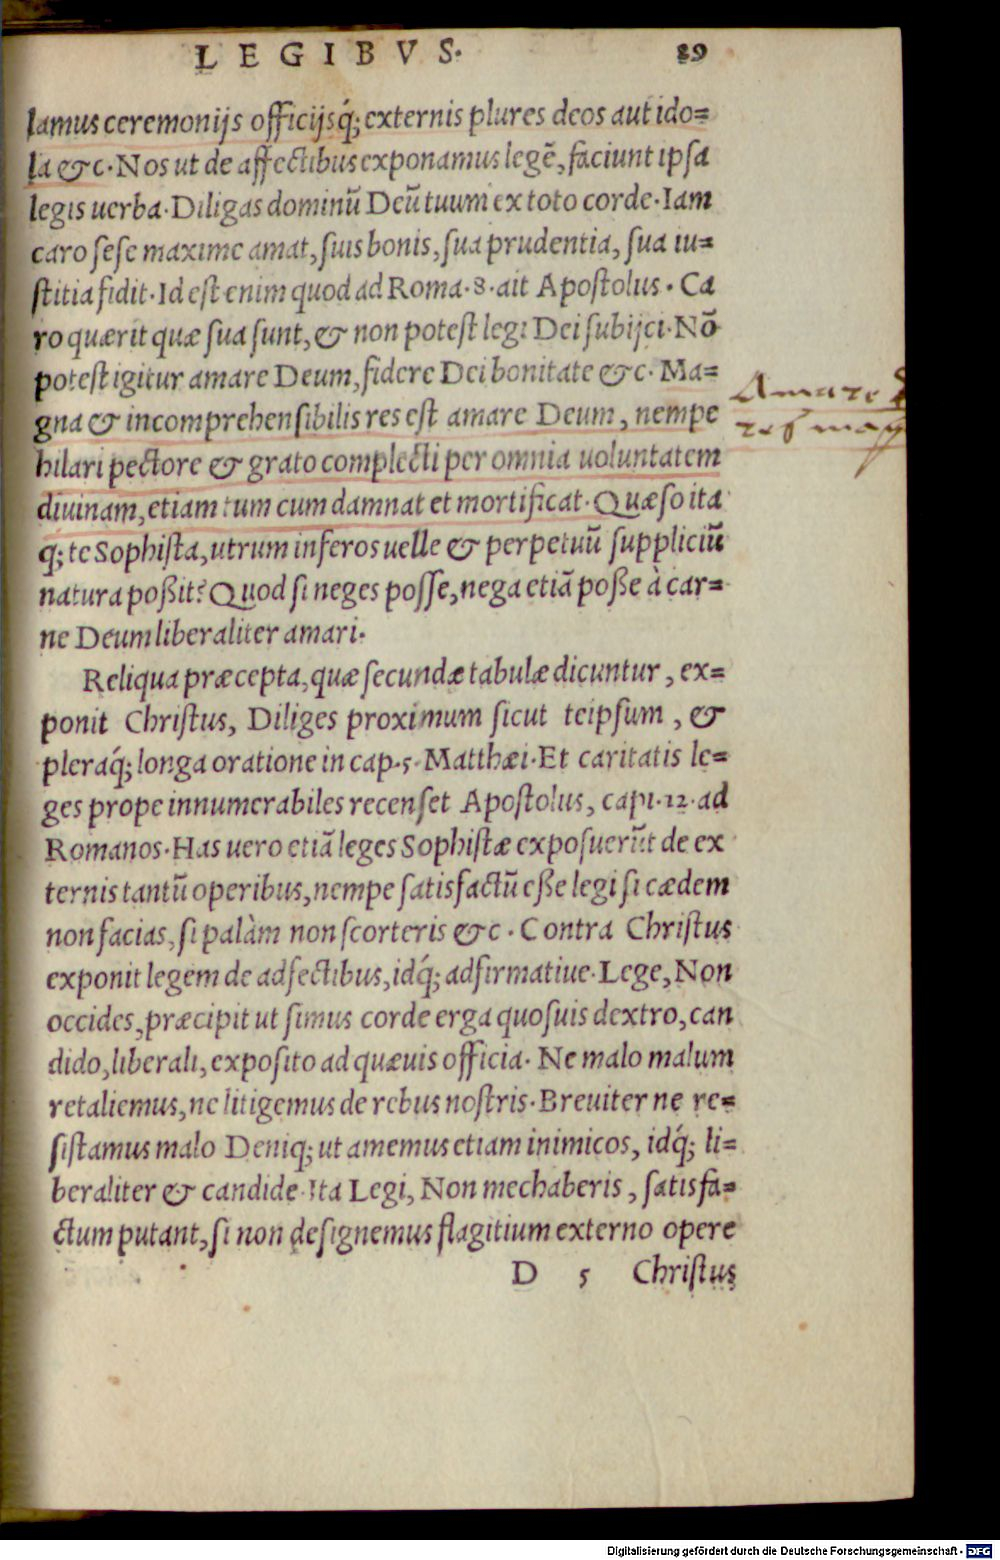 LEGIBVS. 89
lamus ceremonijs officijsq́; externis plures deos aut ido=
la &c. Nos ut de affectibus exponamus legẽ, faciunt ipsa
legis uerba. Diligas dominũ Deũ tuum ex toto corde. Iam
caro sese maxime amat, suis bonis, sua prudentia, sua iu=
stitia fidit. Id est enim quod ad Roma. 8. ait Apostolus. Ca
ro quærit quæ sua sunt, & non potest legi Dei subijci. Nõ
potest igitur amare Deum, fidere Dei bonitate &c. Ma=
gna & incomprehensibilis res est amare Deum, nempe
hilari pectore & grato complecti per omnia uoluntatem
diuinam, etiam tum cum damnat et mortificat. Quæso ita
q́; te Sophista, utrum inferos uelle & perpetuũ suppliciũ
natura poßit? Quod si neges posse, nega etiã poße à car=
ne Deum liberaliter amari.
Reliqua præcepta, quæ secundæ tabulæ dicuntur, ex=
ponit Christus, Diliges proximum sicut teipsum, &
pleraq́; longa oratione in cap. 5. Matthæi. Et caritatis le=
ges prope innumerabiles recenset Apostolus, capi. 12. ad
Romanos. Has uero etiã leges Sophistæ exposuerũt de ex
ternis tantũ operibus, nempe satisfactũ eße legi si cædem
non facias, si palàm non scorteris &c. Contra Christus
exponit legem de adfectibus, idq́; adfirmatiue. Lege, Non
occides, præcipit ut simus corde erga quosuis dextro, can
dido, liberali, exposito ad quæuis officia. Ne malo malum
retaliemus, ne litigemus de rebus nostris. Breuiter ne re=
sistamus malo Deniq; ut amemus etiam inimicos, idq́; li=
beraliter & candide. Ita Legi, Non mechaberis, satisfa=
ctum putant, si non designemus flagitium externo opere
D 5 Christus
Amare
res mag
Digitalisierung gefördert durch die Deutsche Forschungsgemeinschaft - DFG